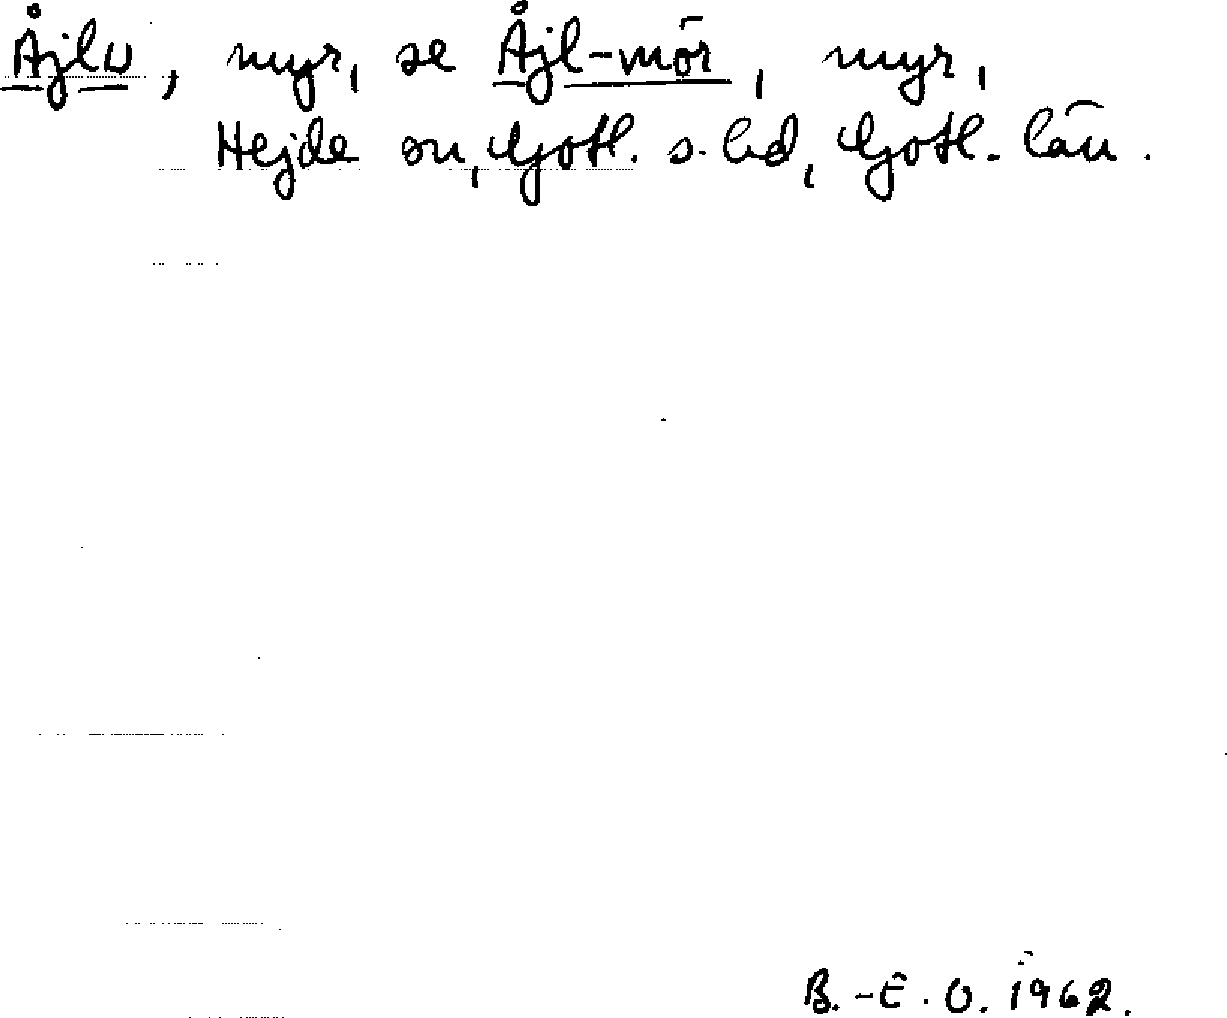 Åjlu, myr, se Åjl-mör, myr,
Hejde sn, Gotl. s. hd, Gotl. län.
B.-E. O. 1962.